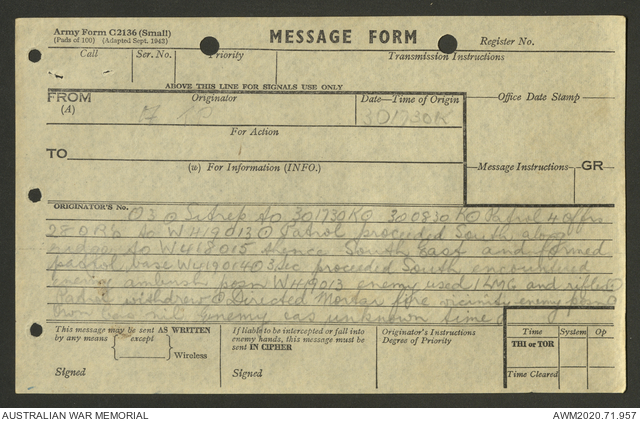 Army Form C2136 (Small)
(Pads of 100) (Adapted Sept. 1943)
MESSAGE FORM
Register No.
Call
Ser. No.
Priority
Transmission Instructions
ABOVE THIS LINE FOR SIGNALS USE ONLY
FROM
(A)
Originator
Date—Time of Origin
301730K
Office Date Stamp
For Action
TO
(w) For Information (INFO.)
Message Instructions
GR
ORIGINATOR'S No.
O3 Sitrep to 301730K 300830K Patrol 4 offrs
28 ORs to W419013 Patrol proceeded South along
to W418015 thence South East and formed
patrol base W419014 3 Sec proceeded South encountered
enemy ambush posn W419013 enemy used 1 LMG and rifles
Patrol withdrew directed Mortar fire vicinity enemy posn
Own cas nil enemy cas unknown time
This message may be sent AS WRITTEN
by any means
except
Wireless
Signed
If liable to be intercepted or fall into
enemy hands, this message must be
sent IN CIPHER
Signed
Originator's Instructions
Degree of Priority
Time
System
Op
THI or TOR
Time Cleared
AUSTRALIAN WAR MEMORIAL
AWM2020.71.957